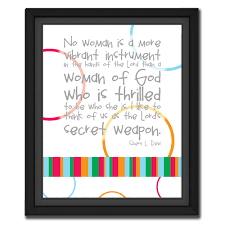 No woman is a more
vibrant instrument
in the hands of the Lord than a
woman of God
who is thrilled
to be who she is. I like to
think of us as the Lord's
secret weapon.
Sheri L. Dew